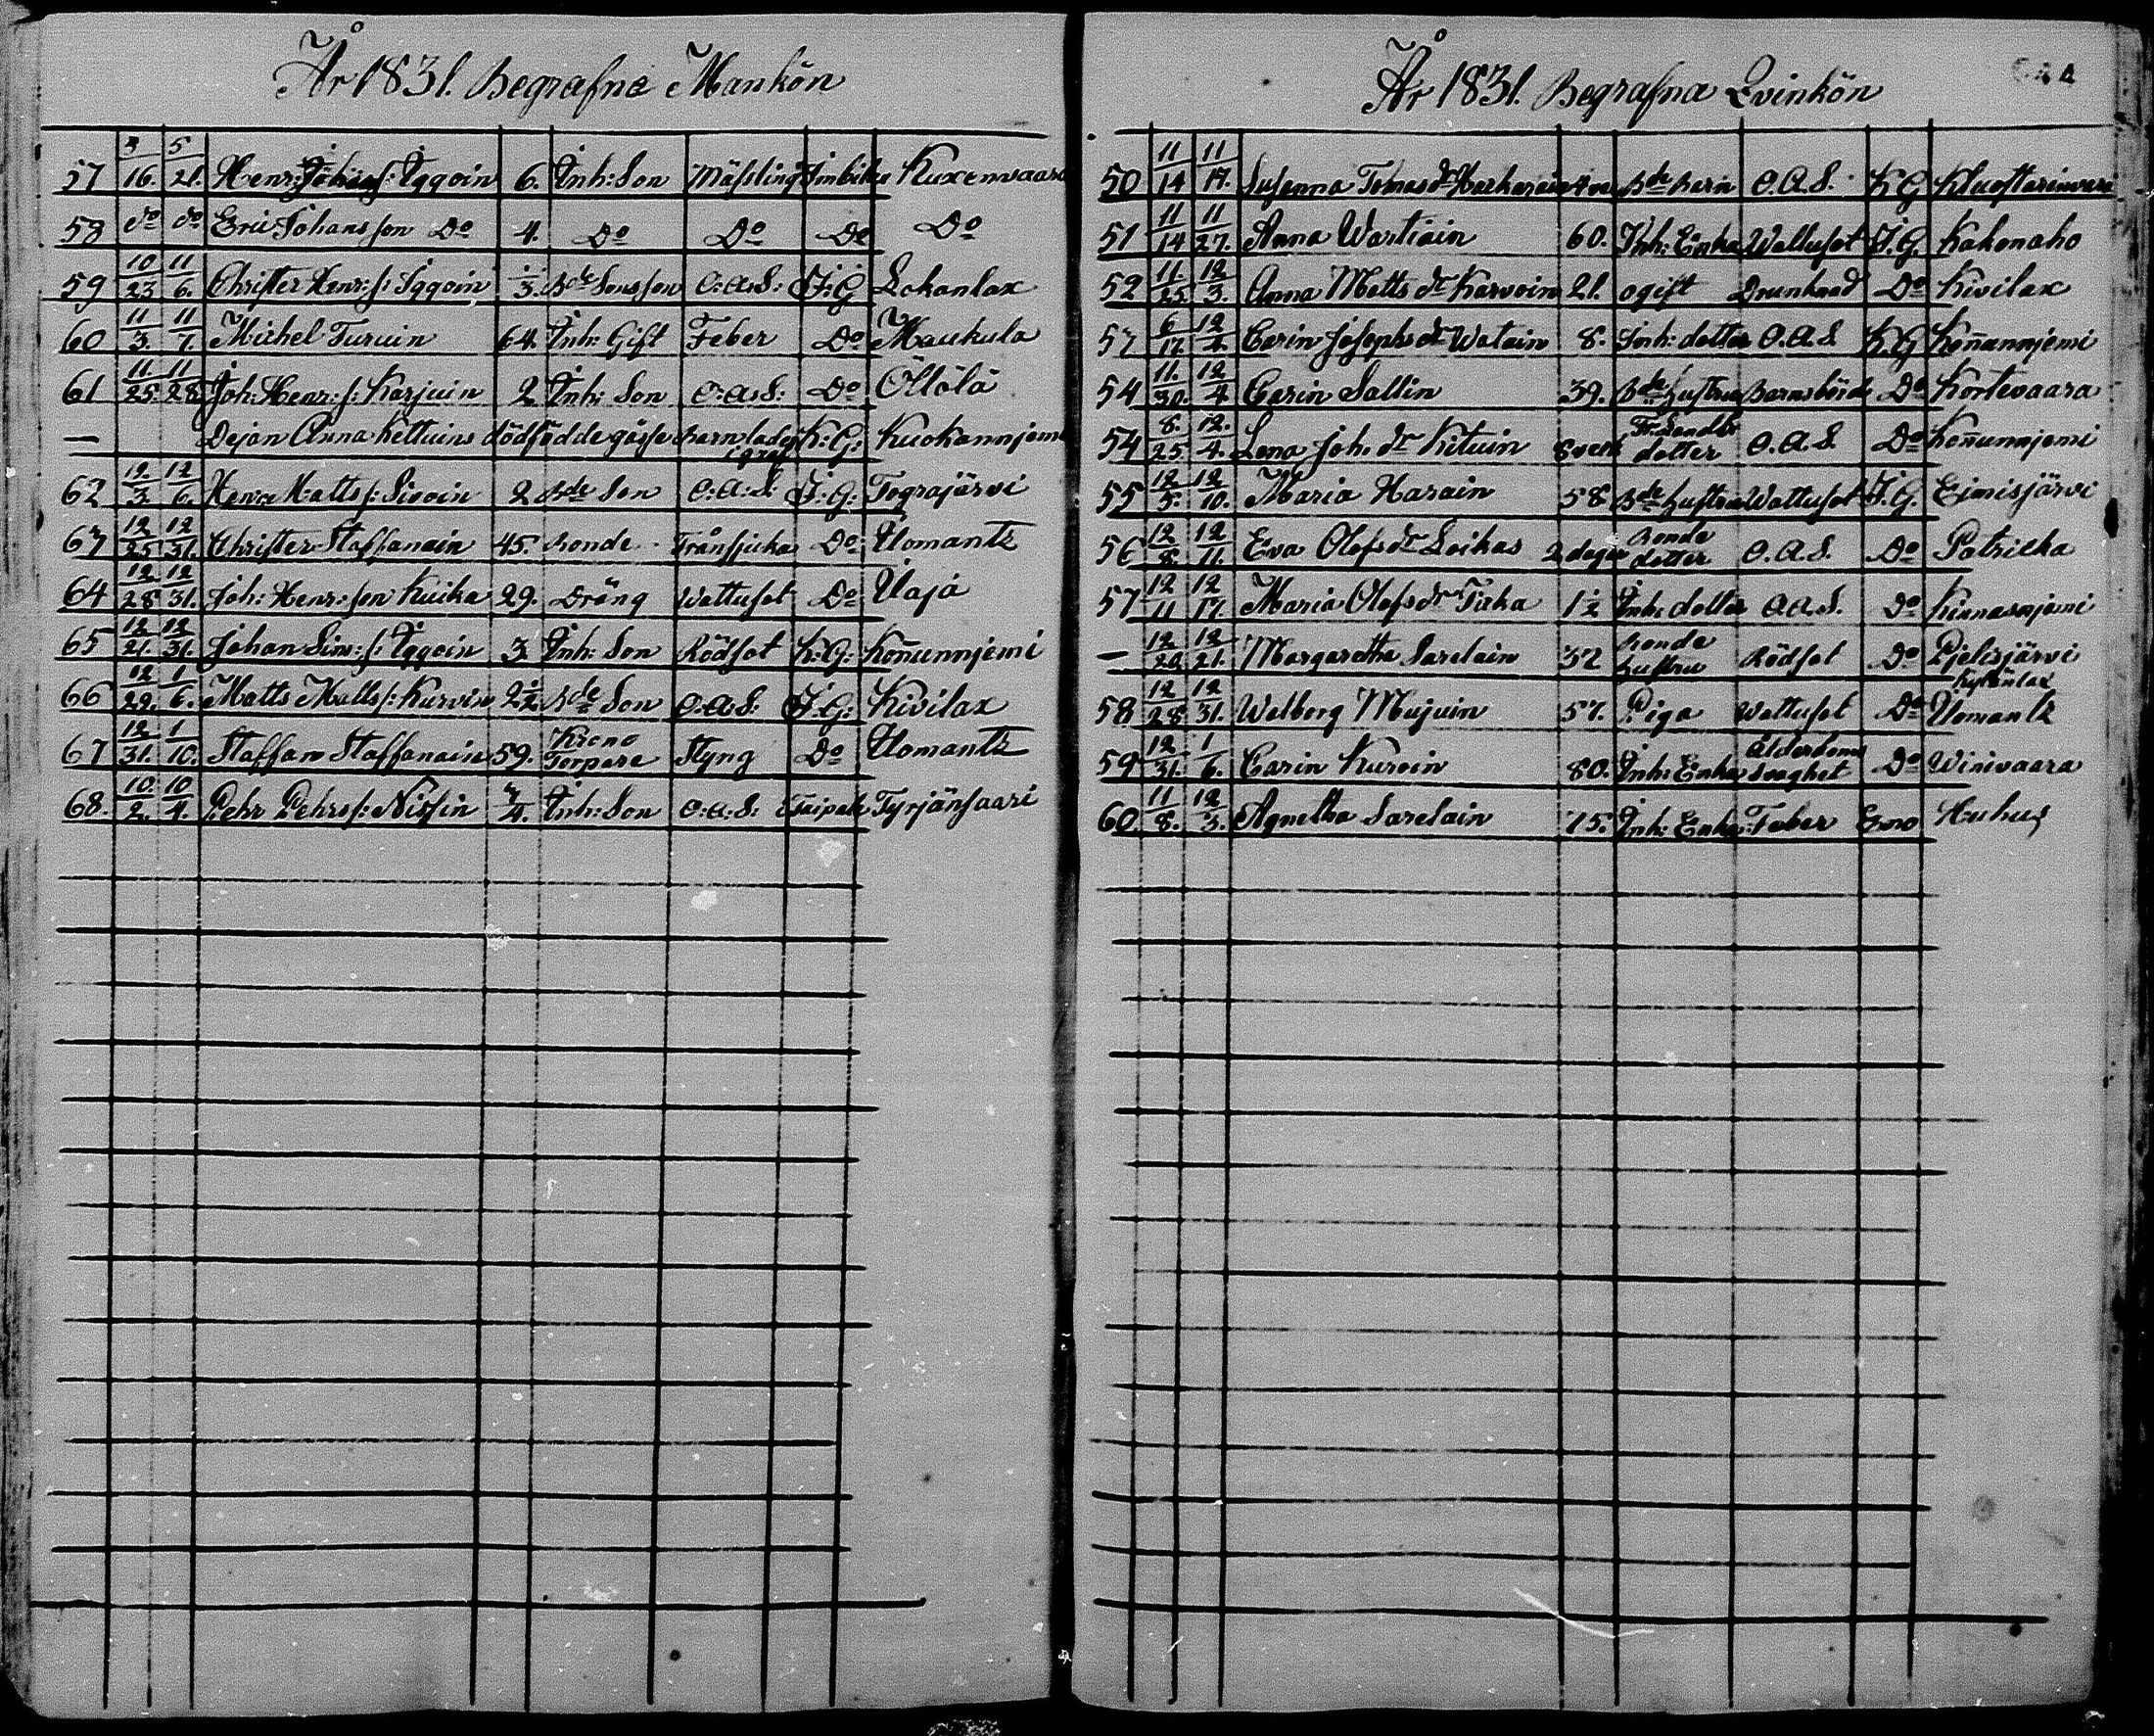 År 1831. Begrafne Mankön
57 3/16. 5/21. Henr: Johans: Iggoin 6. Inh: Son Mässling Kuxenvaara
58 do do Eric Johansson Do 4. Do Do Do Do
59 10/23 11/6. Christer Henr: s: Iggoin 1/3. Bde Sonsson O: A: S: J: G Lokanlax
60 11/3. 11/7. Michel Turuin 64. Inh: Gift Feber Do Maukula
61 11/25. 11/28. Joh: Henr: s: Karjuin 2 Inh: Son O: A: S: Do Öllölä
— Dejan Anna Kettuins dödfödde gosse Barn lades i graf K: G: Kuokannjemi
62 12/3. 12/6. Henr Matts s: Sivoin 2 Bde Son O: A: S: J: G: Tograjärvi
63 12/25 12/31. Christer Staffanain 45. Bonde Trånsjuka Do Ilomantz
64 12/28 12/31. Joh: Henr: son Kuika 29. Dräng Wattusot Do Ilaja
65 12/21. 12/31. Johan Sim: s: Iggoin 3 Inh: Son Rödsot K: G: Koñunnjemi
66 12/29. 1/6. Matts Matts s: Kurvin 2 1/2 Bde Son O: A: S: J: G: Kivilax
67 12/31. 1/10. Staffan Staffanain 59. Krono Torpare Styng Do Ilomantz
68. 10/2. 10/4. Pehr Pehrs s: Nissin 3/4. Inh: Son O: A: S: Taipale Tyrjänsaari
År 1831. Begrafna Qvinkön
50 11/14 11/17. Susanna Tomasdr Bde Barn O. A. S. K G
51 11/14 11/27. Anna Wartiain 60. Inh: Enka Wattusot J. G. Kakonaho
52 11./25 12/3. Anna Matts dr Karvoin 21. ogift Drunknad Do Kivilax
53 6/17. 12/4. Carin Josephs dr Watain 8. Inh: dotter O. A. S. K. G Koñunnjemi
54 11./30. 12/4 Carin Sallin 39. Bde hustru Barnsbörd Do Kortevaara
54 8./25 12./4. Lena Joh. dr Kituin 8 veck dotter O. A. S. Do Koñunnjemi
55 12/5. 12/10. Maria Harain 58 Bde hustru Wattusot J. G. Eimisjärvi
56 12/8. 12/11. Eva Olofs dr Loikas 2 dagar Bonde dotter O. A. S. Do Patricka
57 12/11 12/17. Maria Olofs dr Tiska 1 1/2 Inh: dotter O. A. S. Do Kinnasnjemi
— 12/20 12/21. Margaretha Sarelain 32 Bonde hustru Rödsot Do Pjelisjärvi
58 12/28 12/31. Walborg Mujuin 57. Piga Wattusot Do Ilomantz
59 12/31. 1/6. Carin Kuroin 80. Inh: Enka Ålderdoms svaghet Do Winivaara
60 11/8. 12/3. Agnetha Sarelain 75. Inh: Enka Feber Eno Huhus